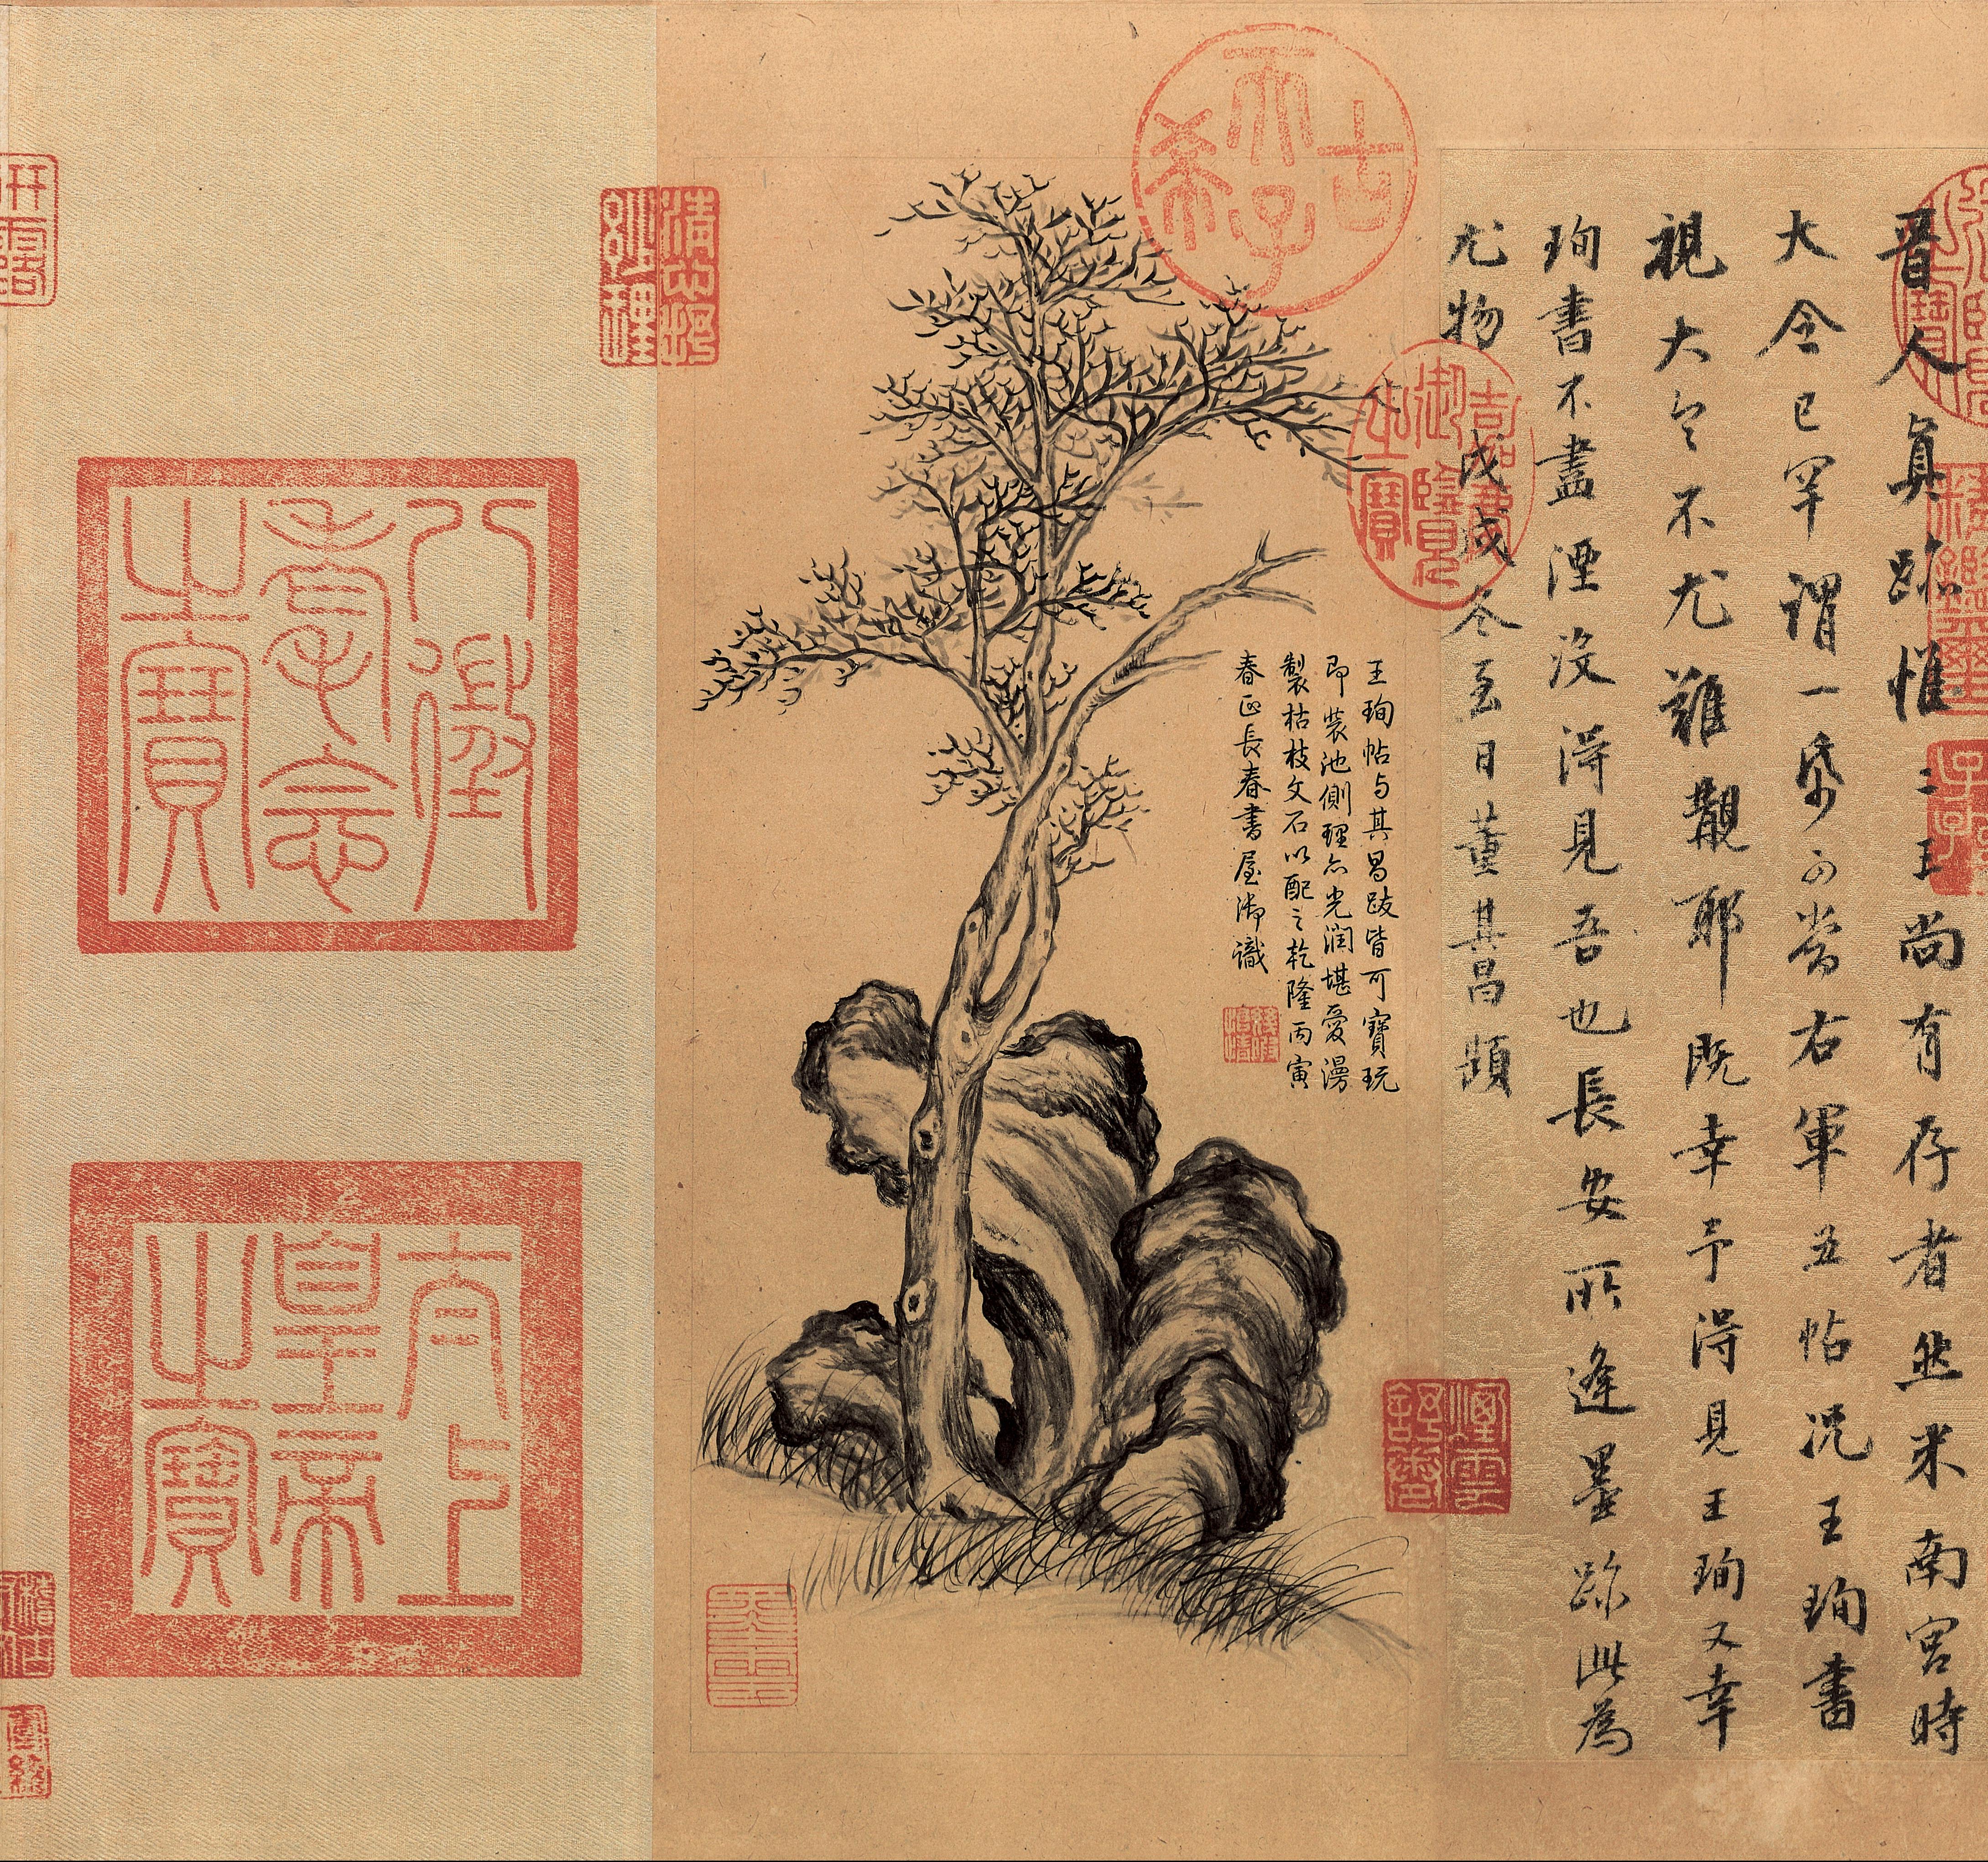 晉人真跡惟二王尚有存者然米南宮時
大令已罕謂一帋可當右軍五帖況王珣書
視大令不尤難覯耶既幸予得見王珣又幸
珣書不盡湮沒得見吾也長安所逢墨跡此為
尤物 戊戌冬至日董其昌題
古希天子
嘉慶御覽之寶
王珣帖与其昌跋皆可寶玩
即裝池側理亦光潤堪愛漫
製枯枝文石以配之乾隆丙寅
春正長春書屋御識
八徵耄念之寶
太上皇帝之寶